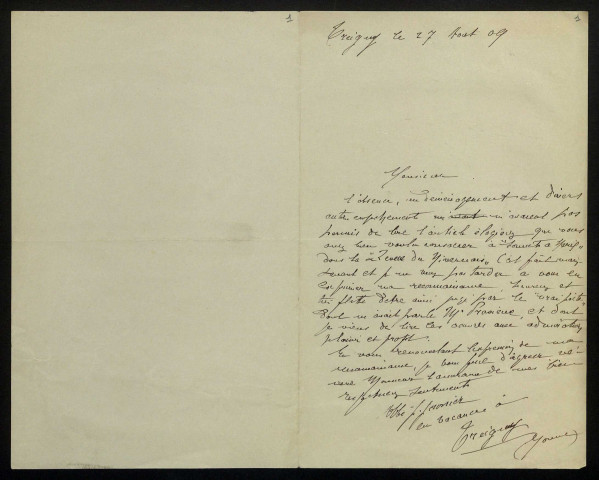 Treigny le 27 Aout 09
Monsieur
L'absence, un déménagement et divers
autres empêchements m'avaient pas
permis de lire l'article élogieux que vous
avez bien voulu consacrer à
dans la "Revue du Nivernais" C'est fait main
tenant et je ne veux pas tarder à vous en
exprimer ma reconnaissance. heureux et
très flatté d'être ainsi jugé par le
dont m'avait parlé Mr et dont
je viens de lire les avec admiration,
plaisir et profit.
En vous renouvelant l'expression de ma
reconnaissance, je vous prie d'agréer,
Monsieur l'assurance de mes
respectueux sentiments
Abbé
en vacances à
Treigny
Yonne